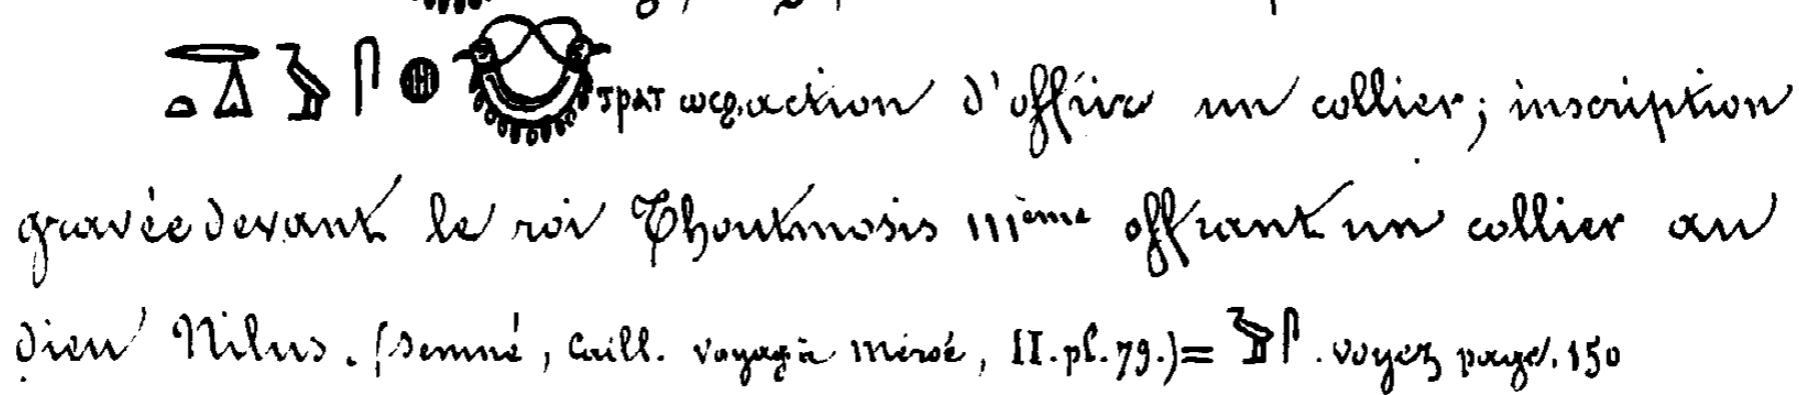 ⲧⲣⲁⲧ ⲱⲥϧ, action d'offrir un collier; inscription
gravée devant le roi Thoutmosis IIIème offrant un collier au
dieu Nilus. (Semné, Caill. Voyage à Méroé, II. pl. 79.) = . voyez page. 150